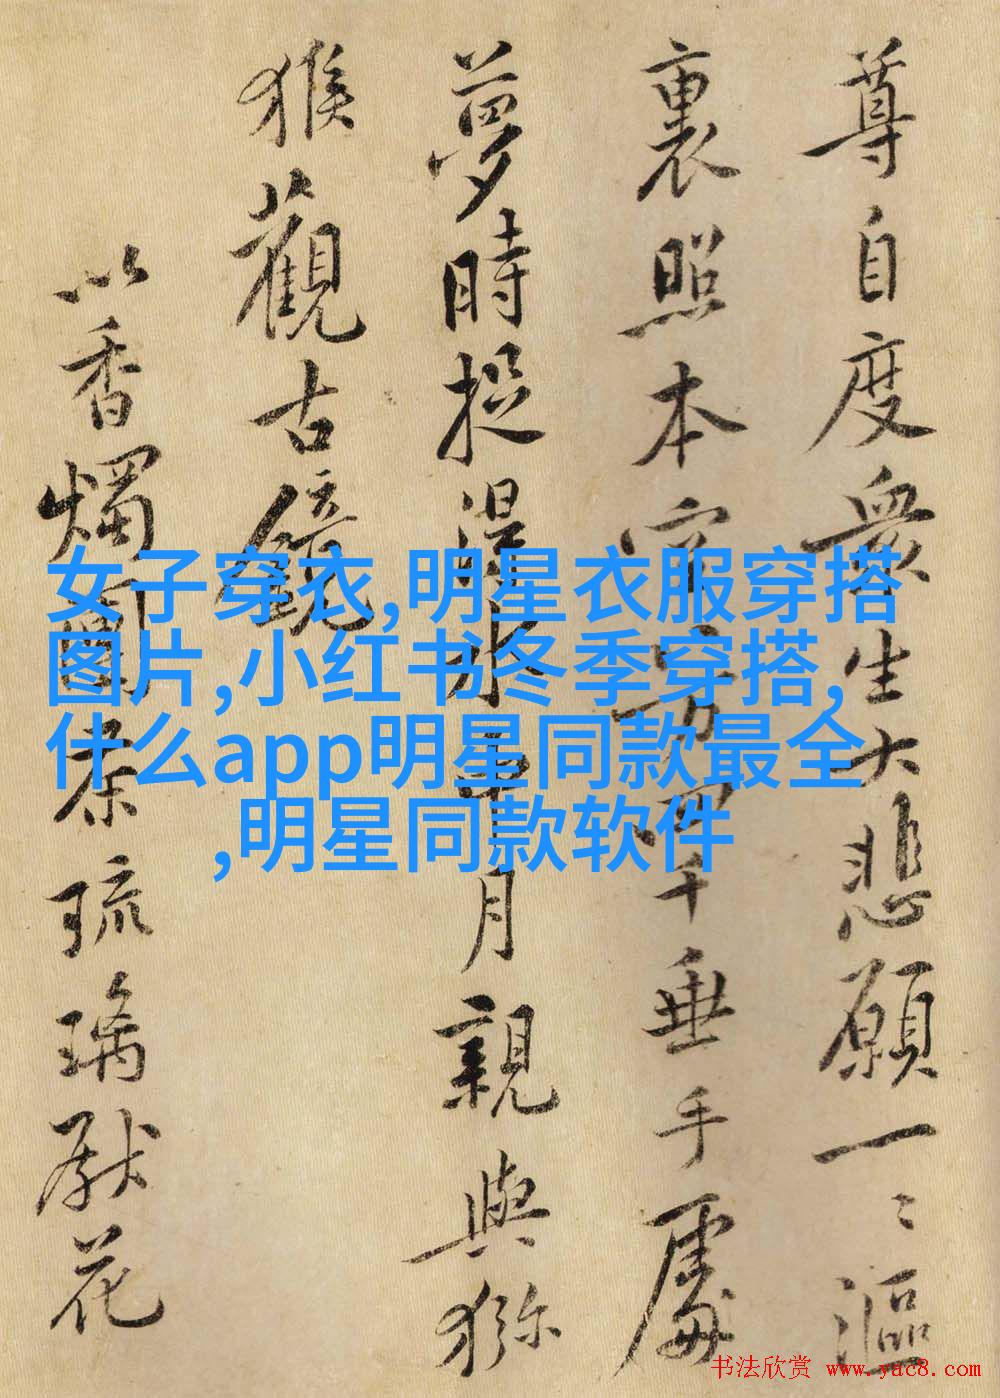 尊自度眾生大悲願一〻漚
裏照本空八万四千垂手處
夢時捉得水中月親與獼
猴觀古鏡
以香燭團茶琉璃獻花
女子穿衣,明星衣服穿搭
图片,小红书冬季穿搭,
什么app明星同款最全
,明星同款软件
书法欣赏 www.yac8.com